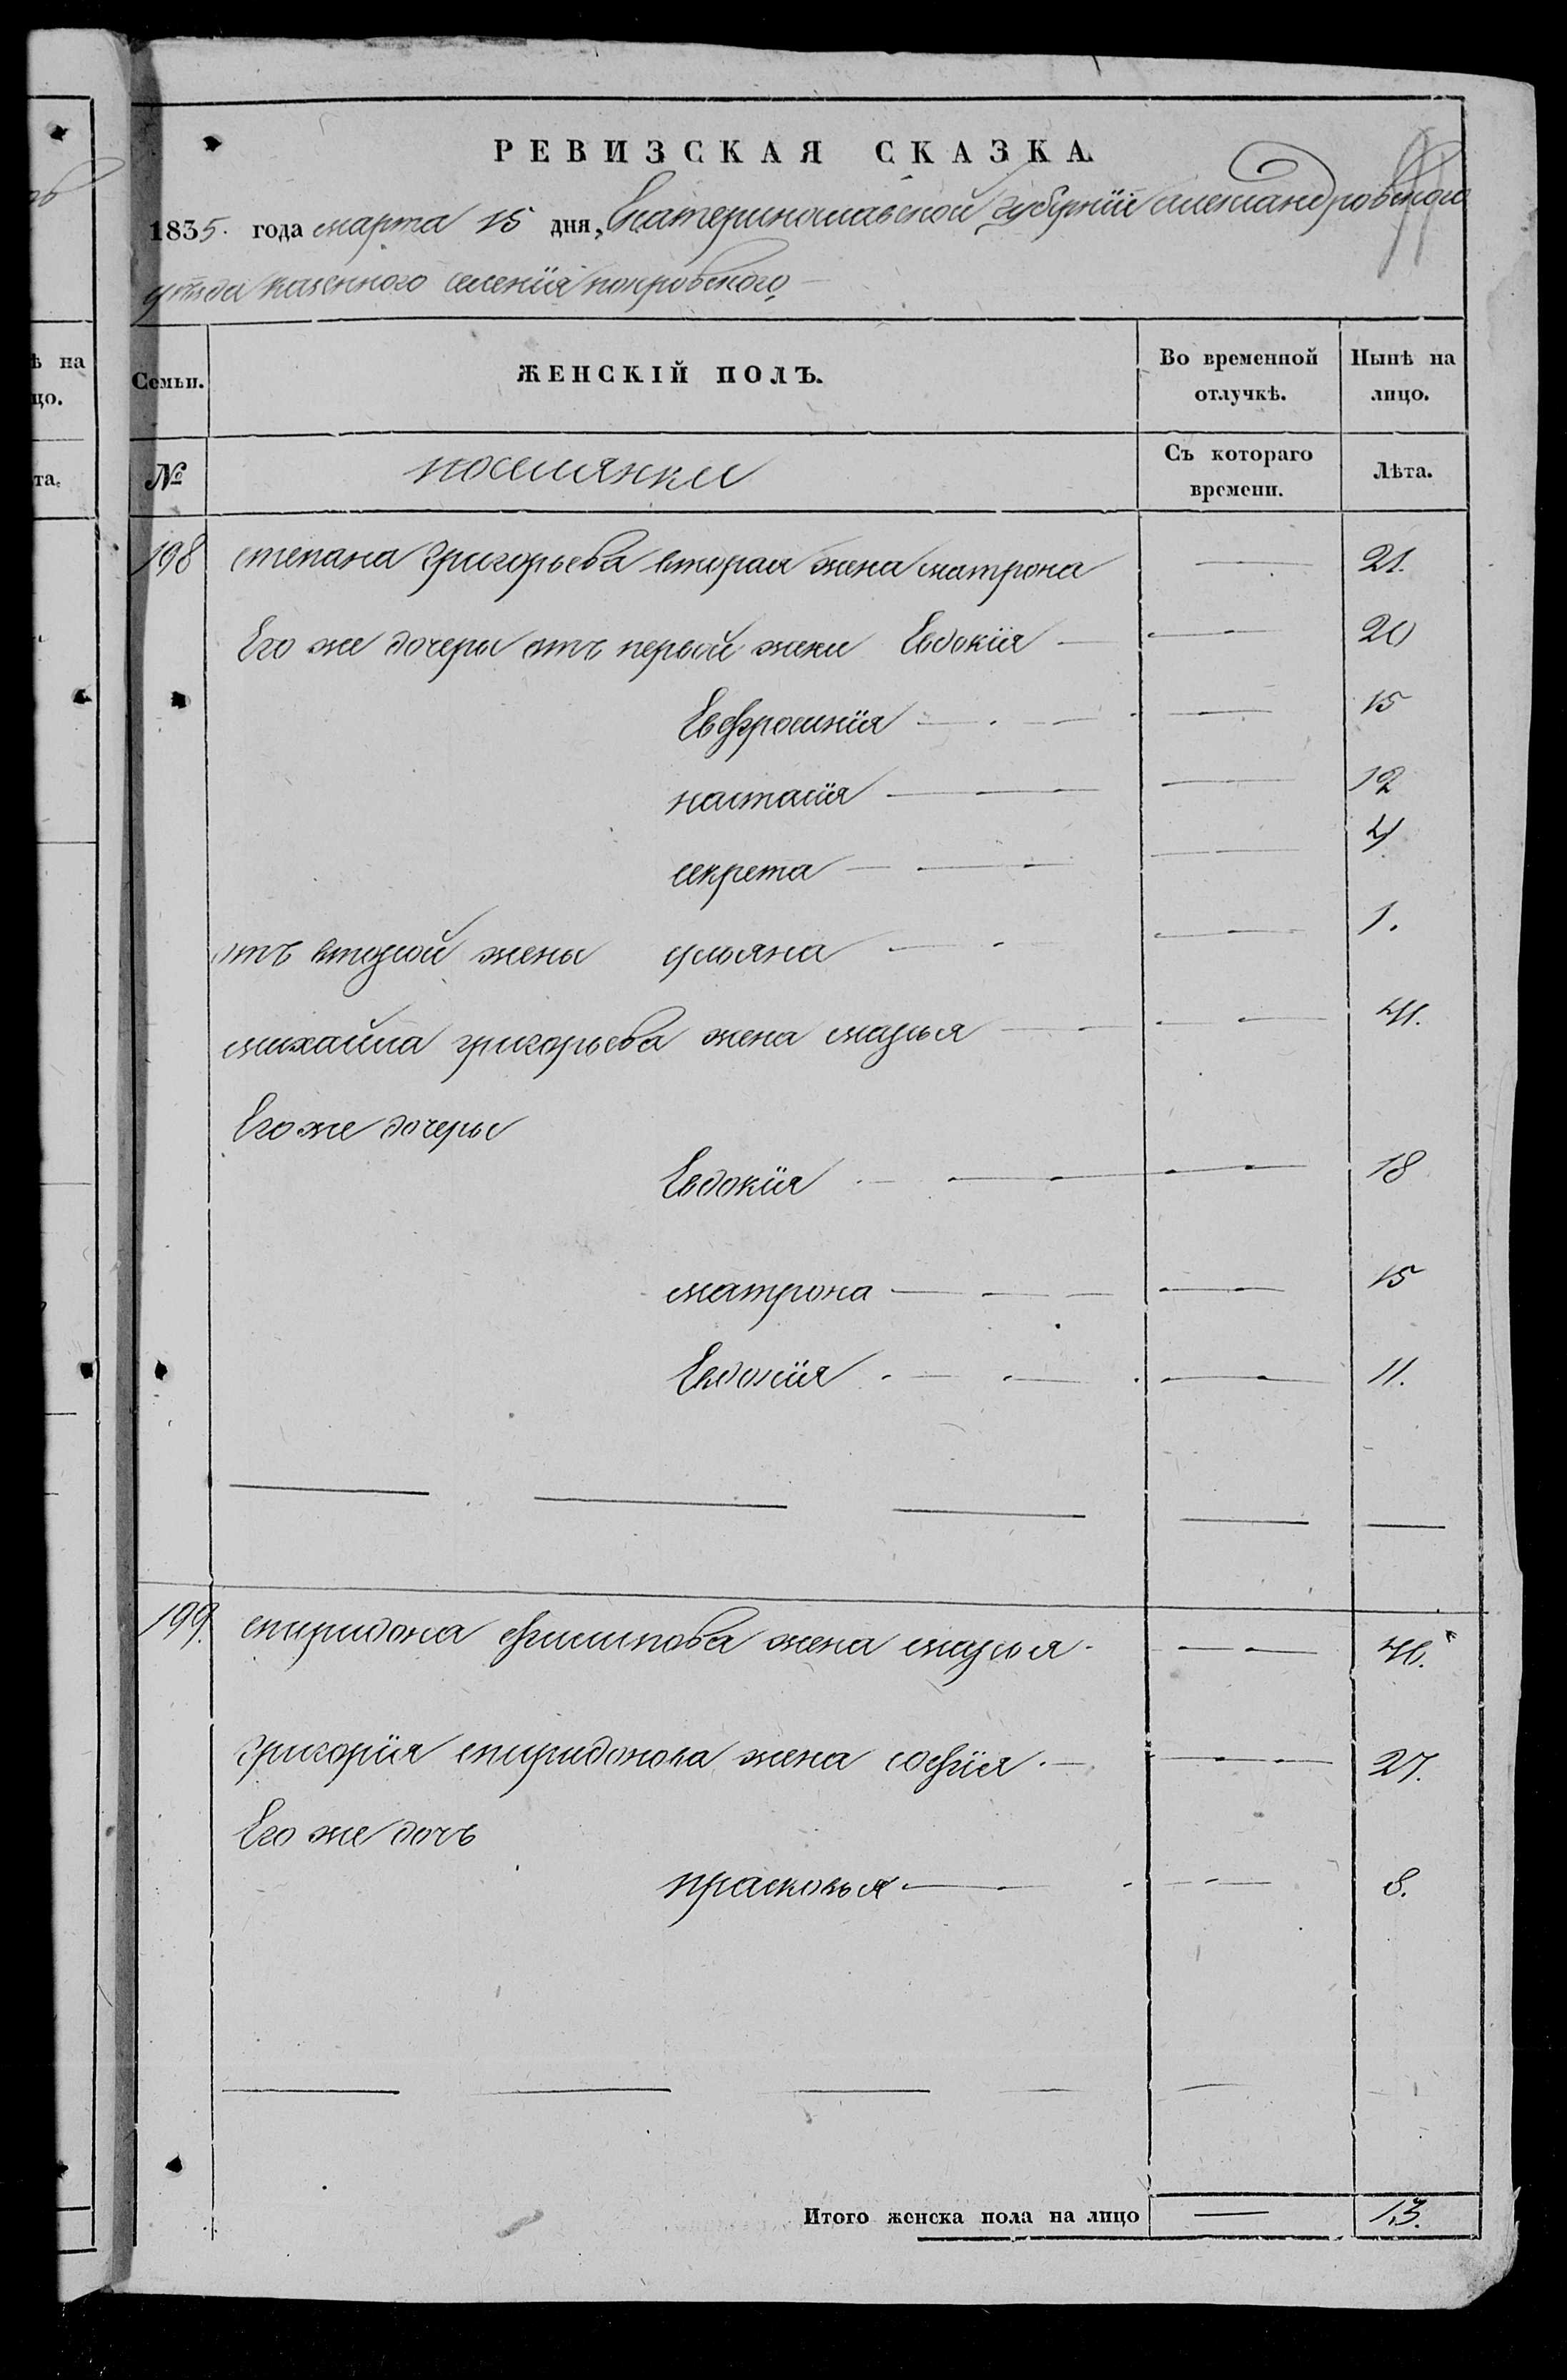 РЕВИЗСКАЯ СКАЗКА.
1835. года марта 15 дня, Екатеринославской губернїи александровского
уѣзда казенного селенїя покровского
Семьи. ЖЕНСКІЙ ПОЛЪ. Во временной отлучкѣ. Нынѣ на лицо.
№ поселянки Съ котораго времени. Лѣта.
198 степана григорьева вторая жена матрона — 21.
Его же дочеры отъ первой жены Евдокїя — 20
Евфросинїя — 15
настасїя — 12
секрета — 4
отъ второй жены ульяна — 1.
михайла григорьева жена марья — 41.
Его же дочеры
Евдокїя — 18
матрона — 15
Евдокїя — 11.
199. спиридона филипова жена марья — 46.
григорїя спиридонова жена софїя — 27.
Его же дочь
прасковья — 8.
Итого женска пола на лицо — 13.
ѣ на
цо.
та.